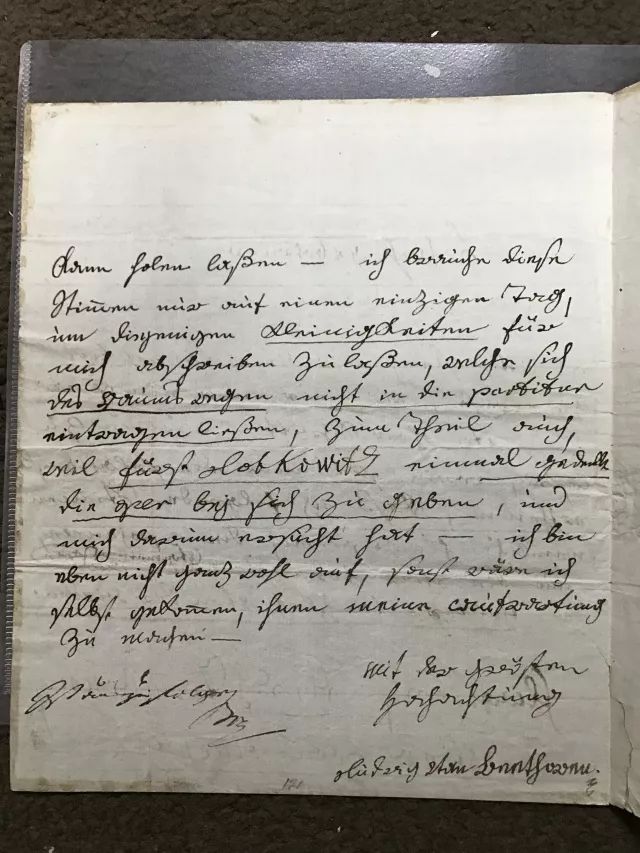 kann holen laßen — ich brauche diese
Stimmen nur auf einen einzigen Tag,
um diejenigen Kleinigkeiten für
mich abschreiben zu laßen, welche sich
des Raums wegen nicht in die partitur
eintragen ließen, zum Theil auch,
weil fürst Lobkowitz einmal gedenkt
die oper bej sich zu geben, und
mich darum ersucht hat — ich bin
eben nicht ganz wohl auf, sonst wäre ich
selbst gekommen, ihnen meine aufwartung
zu machen —
Mit der größten
Hochachtung
Ludwig van Beethoven